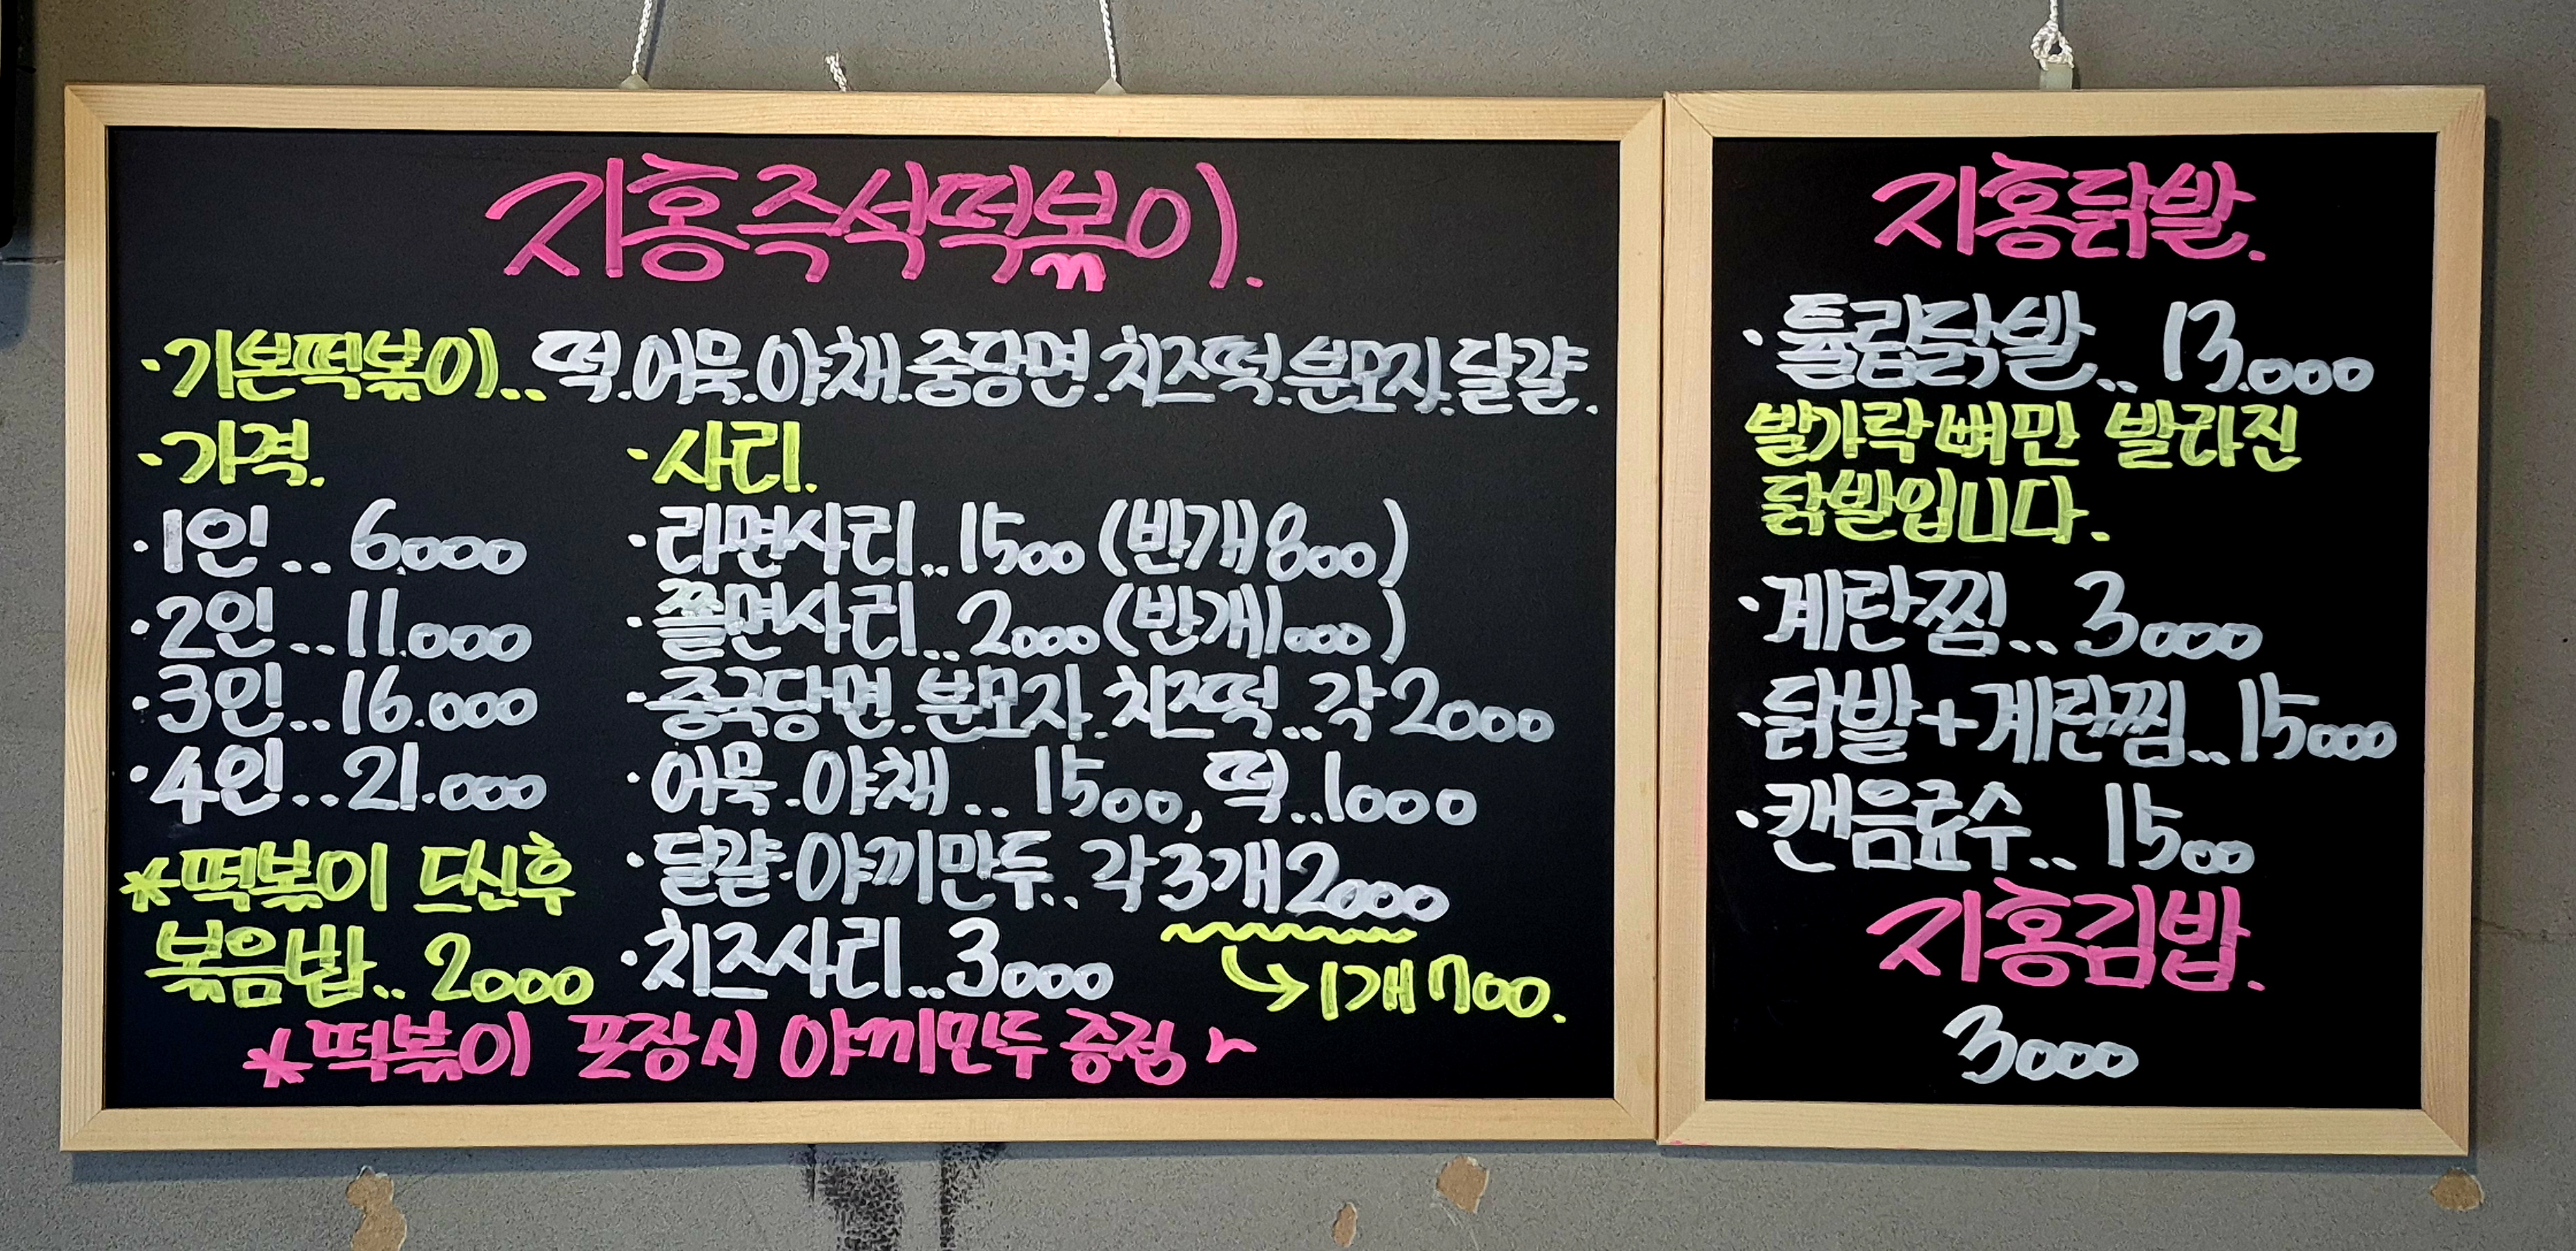 지홍즉석떡볶이.
·기본떡볶이..떡.어묵.야채.중당면.치즈떡.분모자.달걀.
·가격.
·1인..6.000
·2인..11.000
·3인..16.000
·4인..21.000
*떡볶이 드신후
볶음밥..2000
·사리.
·라면사리..1500 (반개800)
·쫄면사리..2000 (반개1000)
·중국당면.분모자.치즈떡..각2000
·어묵.야채..1500, 떡..1000
·달걀.야끼만두..각3개2000
·치즈사리..3000
↳1개700.
*떡볶이 포장시 야끼만두 증정~
지홍닭발.
·튤립닭발..13.000
발가락뼈만 발라진
닭발입니다.
·계란찜..3000
·닭발+계란찜..15000
·캔음료수..1500
지홍김밥.
3000